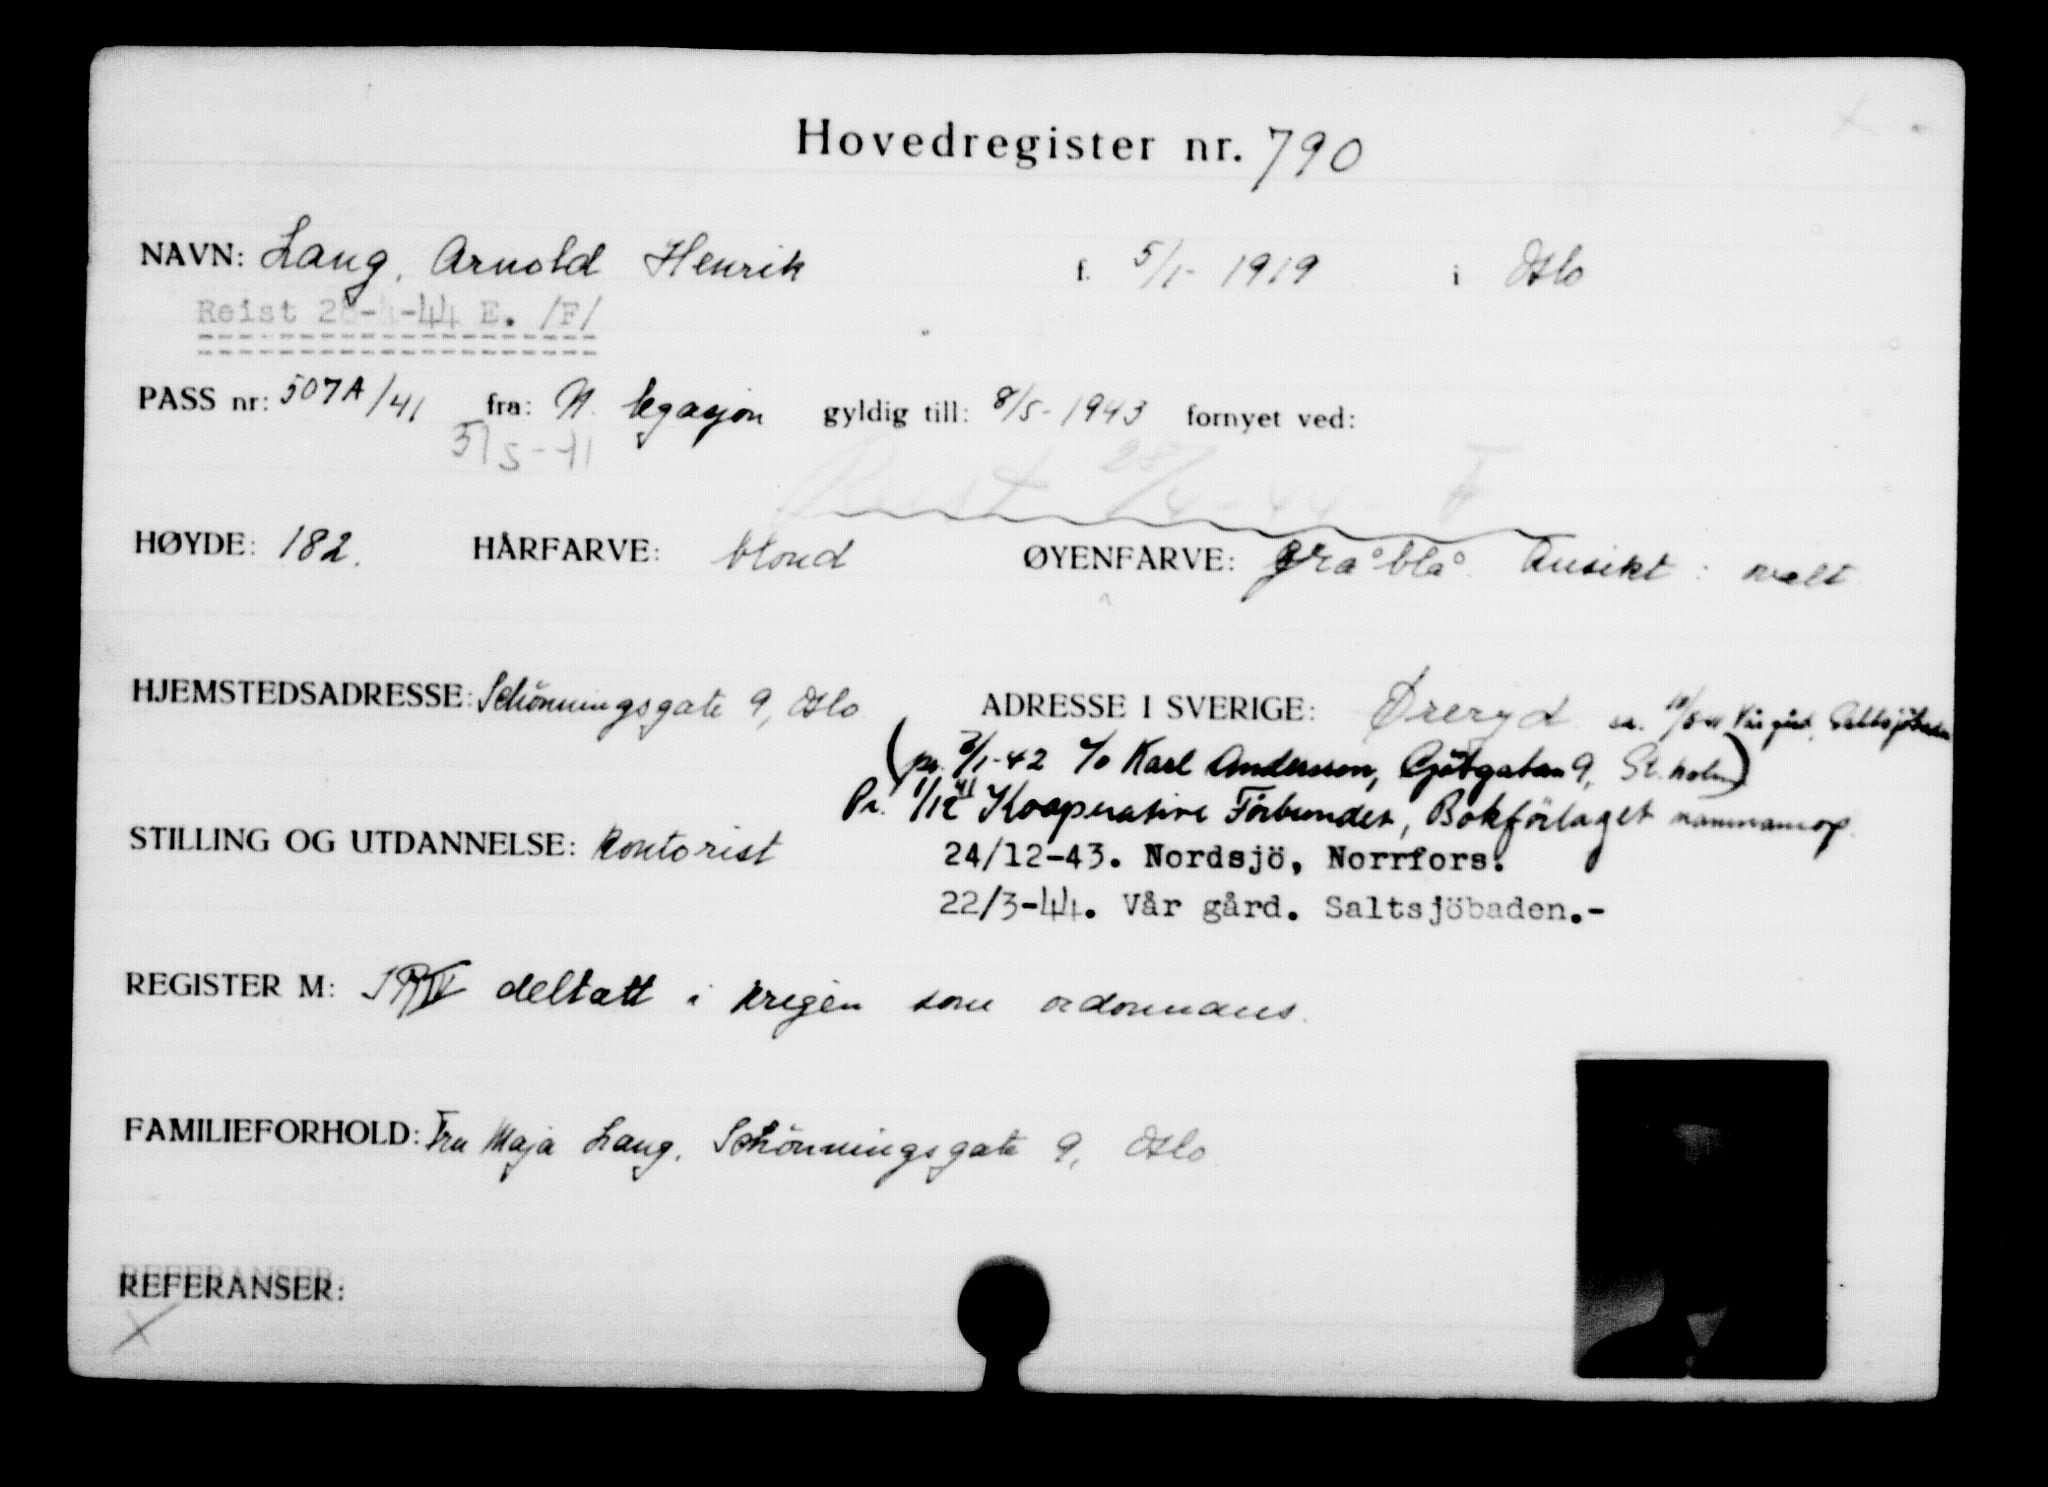 Hovedregister nr. 790
NAVN: Lang, Arnold Henrik f. 5/1- 1919 i Oslo
Reist 28-4-44 E. /F/
PASS nr: 507A/41 fra: N. legasjon gyldig till: 8/5-1943 fornyet ved:
5-41
Reist 28/4-44- F
HØYDE: 182. HÅRFARVE: blond ØYENFARVE: gråblå. Ansikt: ovalt
HJEMSTEDSADRESSE: Schönningsgate 9, Oslo ADRESSE I SVERIGE: Øreryd Vår gård, Saltsjöbaden
(pr. 3/1-42 c/o Karl Andersson, Götgatan 9, St.holm)
Pr. 1/12 41 Kooperative Förbundet, Bokförlaget
STILLING OG UTDANNELSE: kontorist
24/12-43. Nordsjö, Norrfors.
22/3-44. Vår gård. Saltsjöbaden.-
REGISTER M: deltatt i krigen som ordonnans.
FAMILIEFORHOLD: Fru Maja Lang, Schönningsgate 9, Oslo
REFERANSER:
X